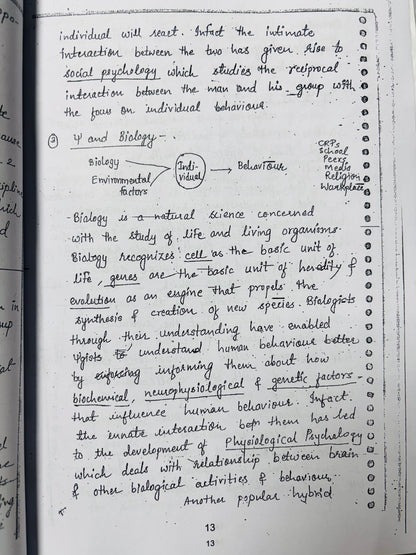 individual will react. Infact the intimate
interaction between the two has given rise to
social psychology which studies the reciprocal
interaction between the man and his group with
the focus on individual behaviour.
② Ψ and Biology -
Biology
Environmental
factors
Indi-
vidual
Behaviour
CRPs
School
Peers
Media
Religion
Workplace
- Biology is a natural science concerned
with the study of life and living organisms.
Biology recognizes cell as the basic unit of
life, genes are the basic unit of heredity &
evolution as an engine that propels the
synthesis & creation of new species. Biologists
through their understanding have enabled
Ψgists to understand human behaviour better
by informing them about how
biochemical, neurophysiological & genetic factors
that influence human behaviour. Infact
the innate interaction betn them has led
to the development of Physiological Psychology
which deals with relationship between brain
& other biological activities & behaviour.
Another popular hybrid
13
13